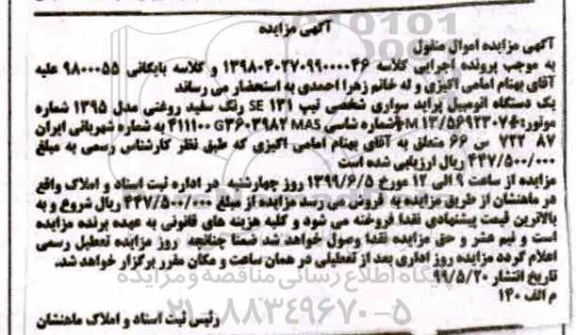 آگهی مزایده
آگهی مزایده اموال منقول
به موجب پرونده اجرایی کلاسه ۱۳۹۸۰۴۰۲۷۰۹۹۰۰۰۰۴۶ و کلاسه بایگانی ۹۸۰۰۰۵۵ علیه
آقای بهنام امامی اکیزی و له خانم زهرا احمدی به استحضار می رساند
یک دستگاه اتومبیل پراید سواری شخصی تیپ SE ۱۳۱ رنگ سفید روغنی مدل ۱۳۹۵ شماره
موتور: M ۱۳/۵۶۹۲۳۰۷ شماره شاسی MAS ۴۱۱۱۰۰ G۳۶۰۳۹۸۲ به شماره شهربانی ایران
۸۷ ۷۲۲ س ۶۶ متعلق به آقای بهنام امامی اکیزی که طبق نظر کارشناس رسمی به مبلغ
۴۴۷/۵۰۰/۰۰۰ ریال ارزیابی شده است
مزایده از ساعت ۹ الی ۱۲ مورخ ۱۳۹۹/۶/۵ روز چهارشنبه در اداره ثبت اسناد و املاک واقع
در ماهنشان از طریق مزایده به فروش می رسد مزایده از مبلغ ۴۴۷/۵۰۰/۰۰۰ ریال شروع و به
بالاترین قیمت پیشنهادی نقدا فروخته می شود و کلیه هزینه های قانونی به عهده برنده مزایده
است و نیم عشر و حق مزایده نقدا وصول خواهد شد ضمنا چنانچه روز مزایده تعطیل رسمی
اعلام گردد مزایده روز اداری بعد از تعطیلی در همان ساعت و مکان مقرر برگزار خواهد شد.
تاریخ انتشار ۹۹/۵/۲۰
م الف ۱۴۰
رئیس ثبت اسناد و املاک ماهنشان
پایگاه اطلاع رسانی مناقصه و مزایده
۰۲۱-۸۸۳۴۹۶۷۰-۵